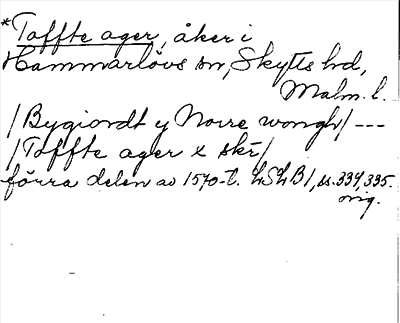 *Toffte ager, åker i
Hammarlövs sn, Skytts hd,
Malm. l.
/Bygiordt y Norre wongh/ ---
/Toffte ager x skr/
förra delen av 1570-t. LSLB1, ss. 334, 335.
orig.